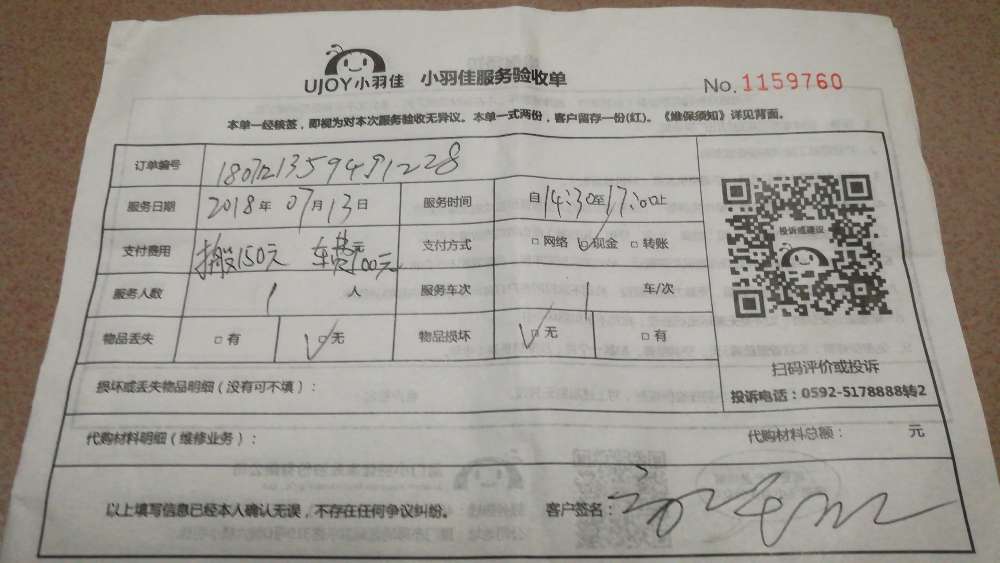 UJOY小羽佳 小羽佳服务验收单 No.1159760
本单一经核签，即视为对本次服务验收无异议。本单一式两份，客户留存一份(红)。《维保须知》详见背面。
订单编号
服务日期 2018年07月13日 服务时间 自14:30至17:00止
支付费用 搬150元 车费100元 支付方式 □网络 □现金 □转账
服务人数 1 人 服务车次 1 车/次
物品丢失 □有 □无 物品损坏 □无 □有
投诉或建议
扫码评价或投诉
投诉电话：0592-5178888转2
损坏或丢失物品明细（没有可不填）：
代购材料明细（维修业务）： 代购材料总额： 元
以上填写信息已经本人确认无误，不存在任何争议纠纷。 客户签名：